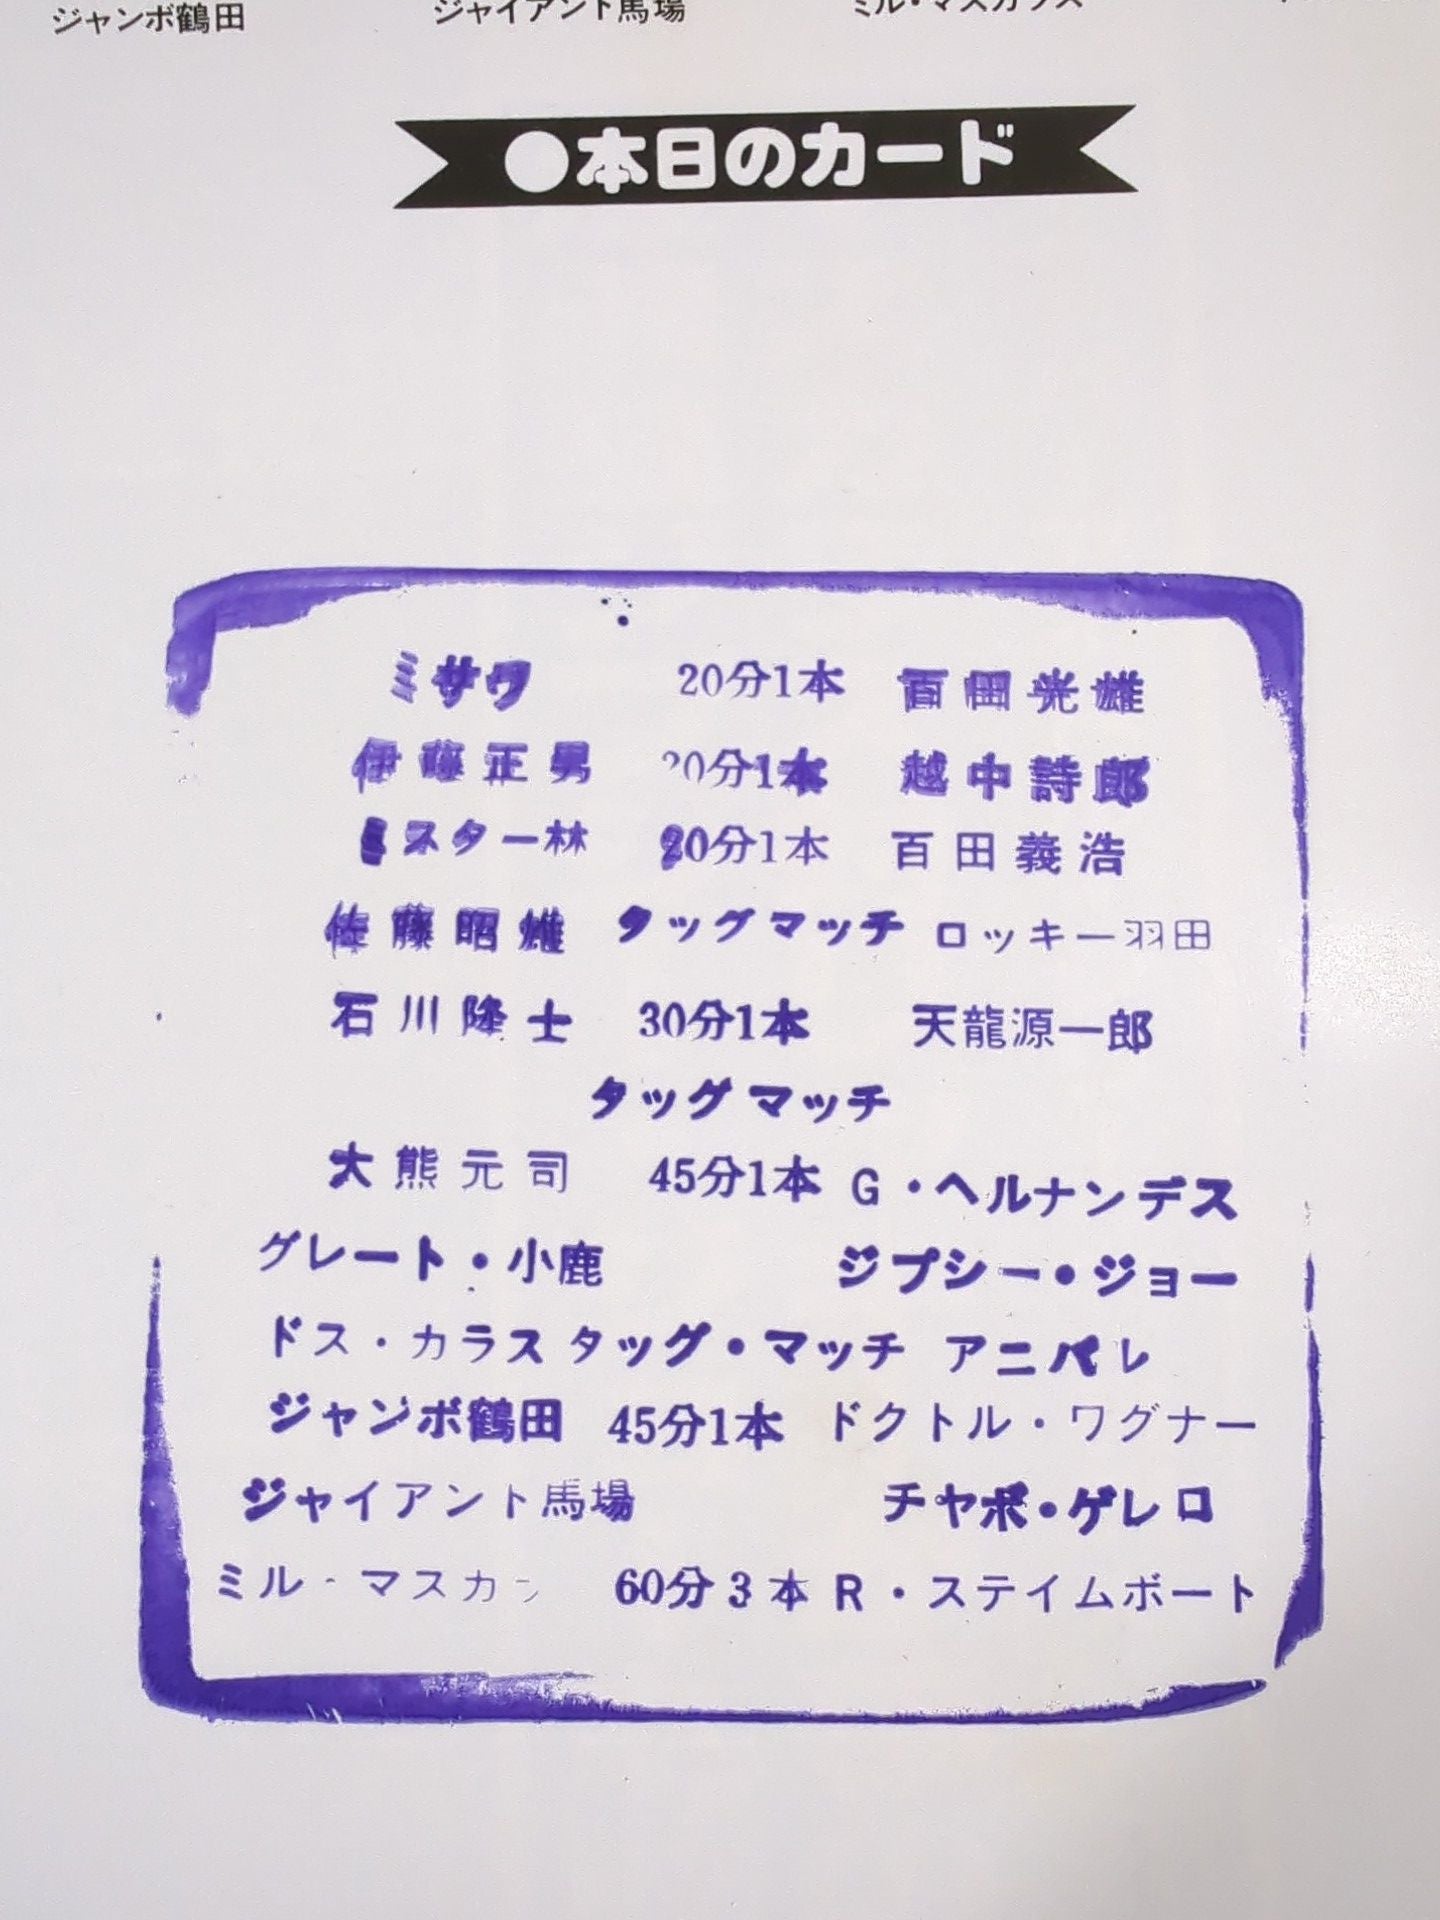 ジャンボ鶴田 ジャイアント馬場 ミル・マスカラス
●本日のカード
ミサワ 20分1本 百田光雄
伊藤正男 20分1本 越中詩郎
ミスター林 20分1本 百田義浩
佐藤昭雄 タッグマッチ ロッキー羽田
石川隆士 30分1本 天龍源一郎
タッグマッチ
大熊元司 45分1本 G・ヘルナンデス
グレート・小鹿 ジプシー・ジョー
ドス・カラス タッグ・マッチ アニバレ
ジャンボ鶴田 45分1本 ドクトル・ワグナー
ジャイアント馬場 チャボ・ゲレロ
ミル・マスカラ 60分3本 R・スティムボート